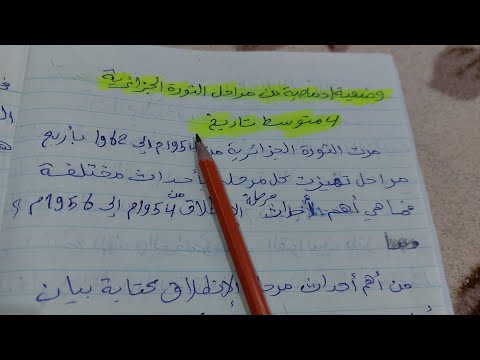 وضعية إدماجية عن مراحل الثورة الجزائرية
4 متوسط تاريخ
مرت الثورة الجزائرية من 1954م إلى 1962 بأربع
مراحل تميزت كل مرحلة بأحداث مختلفة
فما هي أهم أحداث مرحلة الإنطلاق من 1954م إلى 1956م و
من أهم أحداث مرحلة الإنطلاق كتابة بيان